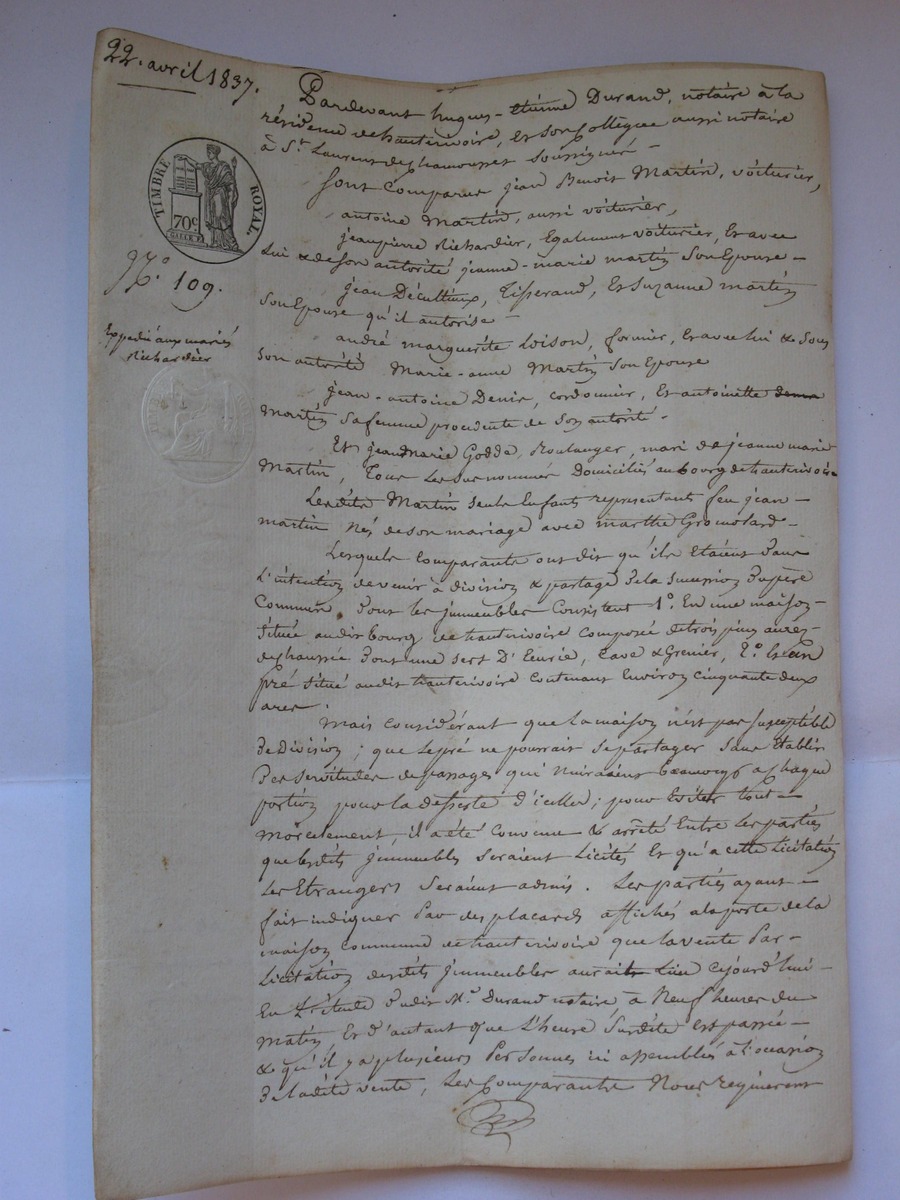 22. avril 1837.
TIMBRE ROYAL
70c
N.º 109.
Expédié aux mariés
Richardier
Pardevant hugues-étienne Durand, notaire à la
résidence de hauterivoire, et son Collègue aussi notaire
à St. Laurent de chamousset soussignés –
Sont Comparus jean Benoit Martin, voiturier,
antoine Martin, aussi voiturier,
jeanpierre Richardier, Egalement voiturier, Et avec
Lui & de son autorité jeanne-marie martin Son Epouse –
jean Décultieux, Tisserand, Et Suzanne martin
Son Epouse qu'il autorise –
andré marguerite Loison, fermier, Et avec lui & Sous
Son autorité Marie-anne Martin Son Epouse
jean-antoine Denis, cordonnier, Et antoinette
Martin Sa femme procédente de Son autorité –
Et jean Marie Godde, Boulanger, mari de jeanne marie
Martin, Tous Les Sus nommés Domiciliés au bourg de hauterivoire
Lesdits Martin Seuls Enfants représentants feu jean –
martin Nés de son mariage avec marthe
Lesquels Comparants ont dit qu'ils Etaient Dans
L'intention de venir à division & partage De la Succession Du père
Commun, Dont les jmmeubles Consistent 1º. En une maison –
Située audit bourg de hauterivoire Composée de trois pièces au rez-
de chaussée Dont une sert D'Ecurie, Cave & Grenier, 2º. Et un
pré Situé audit hauterivoire Contenant Environ Cinquante deux
ares.
Mais Considérant que La maison n'est pas Susceptible
De Division ; que Le pré ne pourrait Se partager Sans Etablir
Des Servitudes de passages qui Nuiraient beaucoup a Chaque
portion pour la desserte d'icelles ; pour Eviter tout –
Morcelement, il a été Convenu & arrêté Entre Les parties
que lesdits jmmeubles Seraient Licités Et qu'a cette Licitation
Les Etrangers Seraient admis. Les parties ayant –
fait indiquer Par des placards affichés a la porte de la
maison Commune de hauterivoire que la vente Par –
Licitation desdits jmmeubles aurait Lieu Cejourd'hui –
En L'étude Dudit Me. Durand notaire à Neuf heures du
Matin, Et D'autant que L'heure Susdite est passée –
& qu'il y a plusieurs Personnes ici assemblées à L'occasion
De ladite vente, Les Comparants Nous requierent